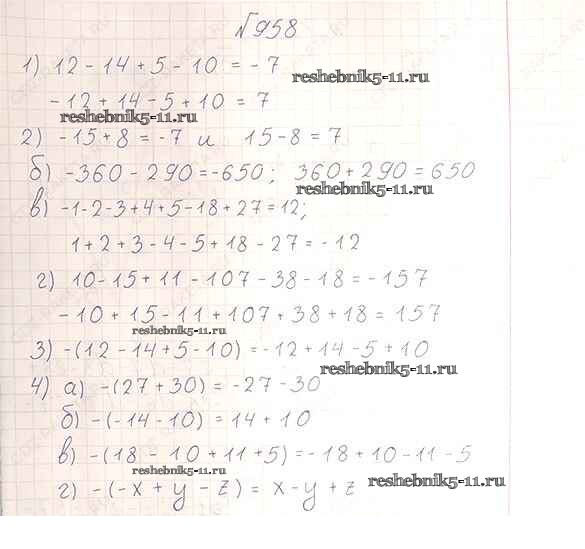 №958
1) 12 - 14 + 5 - 10 = - 7
reshebnik5-11.ru
- 12 + 14 - 5 + 10 = 7
reshebnik5-11.ru
2) -15 + 8 = -7 и 15 - 8 = 7
б) -360 - 290 = -650; 360 + 290 = 650
reshebnik5-11.ru
в) -1-2-3+4+5-18+27=12;
1+2+3-4-5+18-27=-12
г) 10-15+11-107-38-18=-157
-10+15-11+107+38+18=157
reshebnik5-11.ru
3) -(12-14+5-10)=-12+14-5+10
reshebnik5-11.ru
4) а) -(27+30) = -27-30
б) -(-14-10) = 14+10
в) -(18-10+11+5)=-18+10-11-5
reshebnik5-11.ru
г) -(-x+y-z) = x-y+z
reshebnik5-11.ru